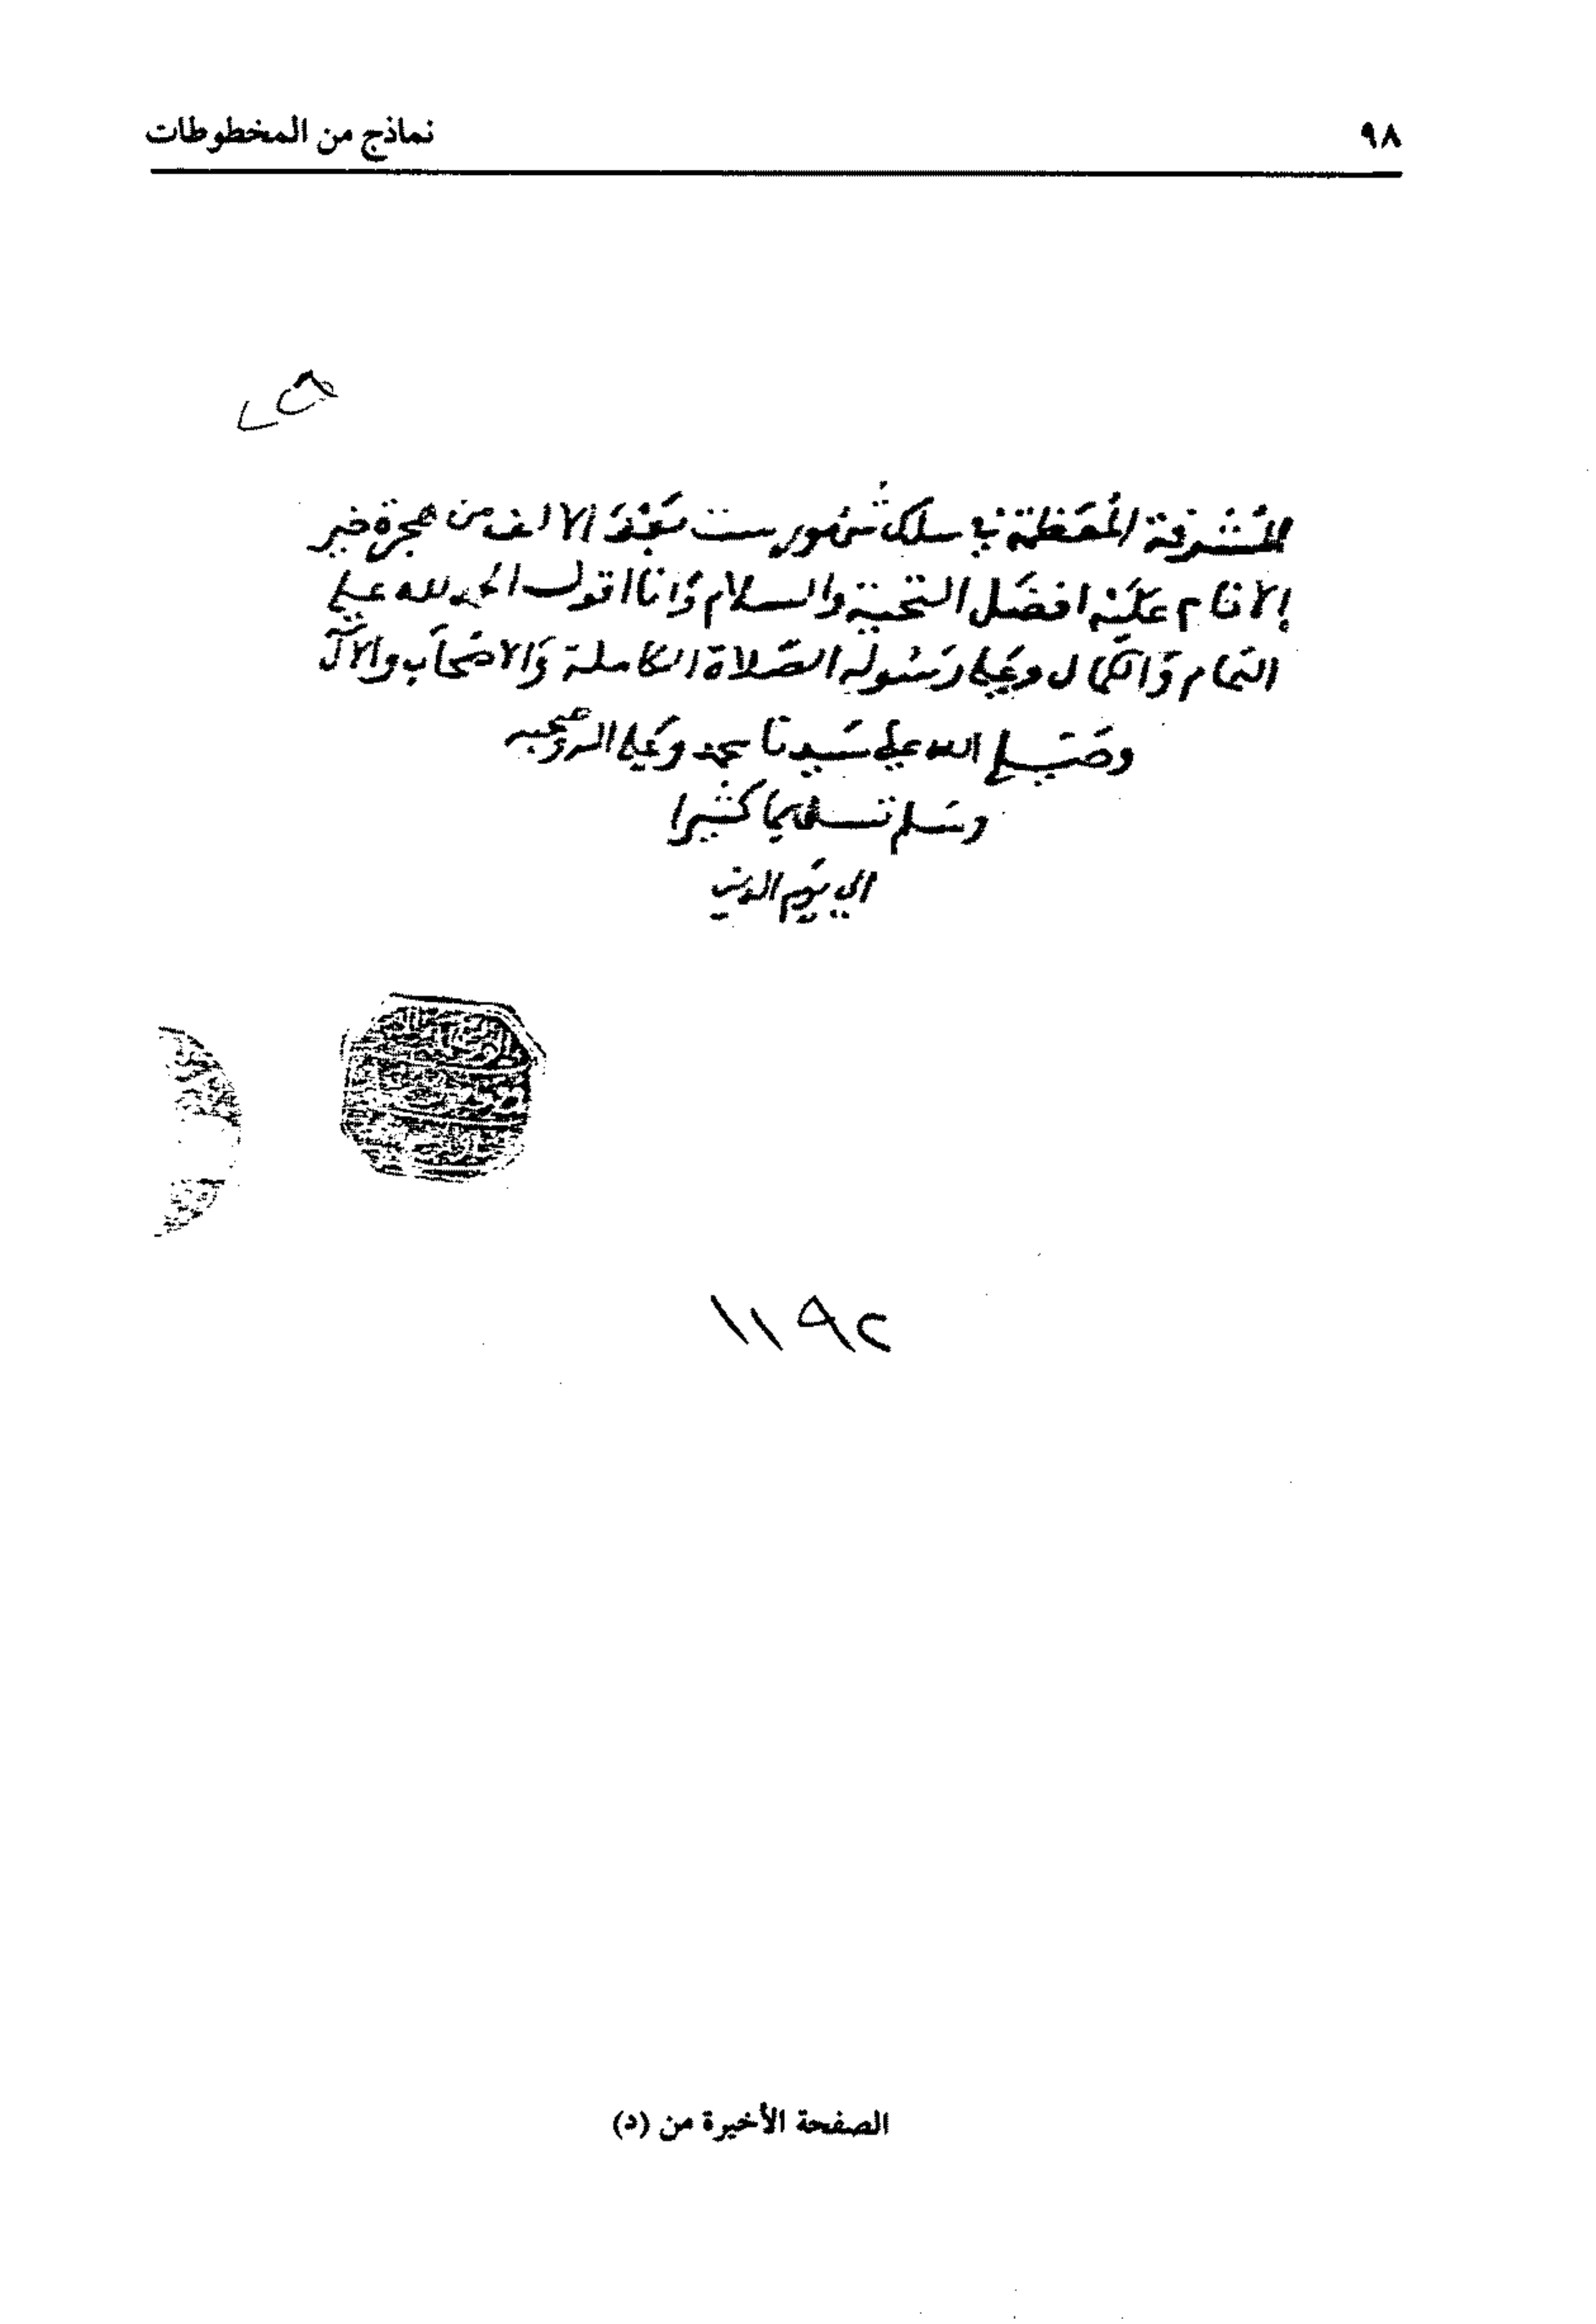 ٩٨
نماذج من المخطوطات
المشرفة المعظمة في سلك شهور ست بعد الالف من هجرة خير
الانام عليه افضل التحية والسلام وانا اقول الحمد لله علي
التمام والكمال وعلي رسوله الصلاة الكاملة والاصحاب والآل
وصلي الله علي سيدنا محمد وعلي اله وصحبه
وسلم تسليما كثيرا
الي يوم الدين
١١٩٢
الصفحة الأخيرة من (د)